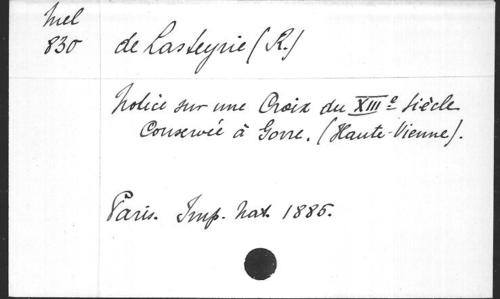 Mel
830
de Lasteyrie (R.)
Notice sur une Croix du XIIIe Siècle
Conservée à Gorre. (Haute-Vienne).
Paris. Imp. Nat. 1885.